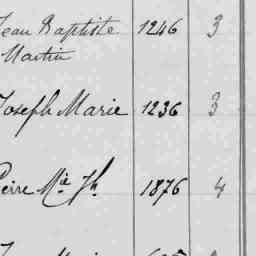 Jean Baptiste 1246 3
Martin
Joseph Marie 1236 3
Pierre Mie Jh 1876 4